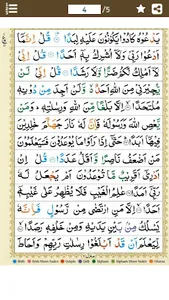 4 /5
يَدْعُوْهُ كَادُوْا يَكُوْنُوْنَ عَلَيْهِ لِبَدًا قُلْ اِنَّمَاۤ
اَدْعُوْا رَبِّيْ وَلَاۤ اُشْرِكُ بِهٖۤ اَحَدًا قُلْ اِنِّيْ
لَاۤ اَمْلِكُ لَكُمْ ضَرًّا وَّلَا رَشَدًا قُلْ اِنِّيْ لَنْ
يُّجِيْرَنِيْ مِنَ اللّٰهِ اَحَدٌ وَّلَنْ اَجِدَ مِنْ دُوْنِهٖ
مُلْتَحَدًا اِلَّا بَلٰغًا مِّنَ اللّٰهِ وَرِسٰلٰتِهٖ وَمَنْ
يَّعْصِ اللّٰهَ وَرَسُوْلَهٗ فَاِنَّ لَهٗ نَارَ جَهَنَّمَ خٰلِدِيْنَ
فِيْهَاۤ اَبَدًا حَتّٰۤى اِذَا رَاَوْا مَا يُوْعَدُوْنَ فَسَيَعْلَمُوْنَ
مَنْ اَضْعَفُ نَاصِرًا وَّاَقَلُّ عَدَدًا قُلْ اِنْ
اَدْرِيْۤ اَقَرِيْبٌ مَّا تُوْعَدُوْنَ اَمْ يَجْعَلُ لَهٗ
رَبِّيْۤ اَمَدًا عٰلِمُ الْغَيْبِ فَلَا يُظْهِرُ عَلٰى غَيْبِهٖۤ
اَحَدًا اِلَّا مَنِ ارْتَضٰى مِنْ رَّسُوْلٍ فَاِنَّهٗ
يَسْلُكُ مِنْۢ بَيْنِ يَدَيْهِ وَمِنْ خَلْفِهٖ رَصَدًا
لِّيَعْلَمَ اَنْ قَدْ اَبْلَغُوْا رِسٰلٰتِ رَبِّهِمْ وَاَحَاطَ